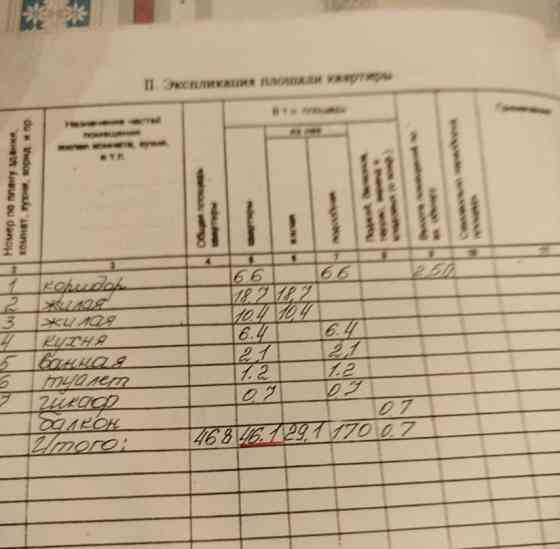 II. Экспликация площади квартиры
Номер по плану здания, комнат, кухни, корид. и пр.
Назначение частей помещения жилая комната, кухня, и т.п.
Общая площадь квартиры
В т.ч. площадь
из нее
квартиры
жилая
подсобная
Высота помещений по
Самовольно
площадь
Примечание
2 3 4 5 6 7 8 9 10 11
1 коридор 6.6 6.6 2.50
2 жилая 18,7 18,7
3 жилая 10,4 10,4
4 кухня 6.4 6.4
5 ванная 2,1 2,1
6 туалет 1.2 1.2
7 шкаф 0.7 0.7
балкон 0.7
Итого: 46.8 46.1 29,1 17.0 0.7